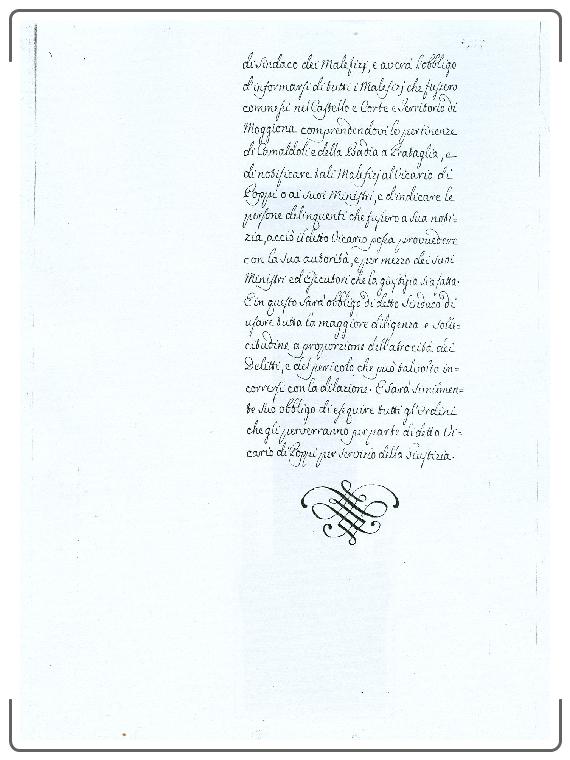 di Sindaco dei Malefizj, e averà l'obbligo
d'informarsi di tutti i Malefizj che fussero
commessi nel Castello e Corte e Territorio di
Moggiona comprendendovi le pertinenze
di Camaldoli e della Badia a Prataglia, e
di notificare tali Malefizj al Vicario di
Poppi o ai suoi Ministri, e d'indicare le
persone delinquenti che fussero a sua noti-
zia, acciò il detto Vicario possa provvedere
con la sua autorità, e per mezzo dei suoi
Ministri ed Esecutori che la giustizia sia fatta.
E in questo sarà obbligo di detto Sindaco di
usare tutta la maggiore diligenza e solle-
citudine a proporzione dell'atrocità dei
Delitti, e del pericolo che può talvolta in-
corrersi con la dilazione. E sarà similmen-
te suo obbligo di eseguire tutti gl'Ordini
che gli perverranno per parte di detto Vi-
cario di Poppi per servizio della Giustizia.